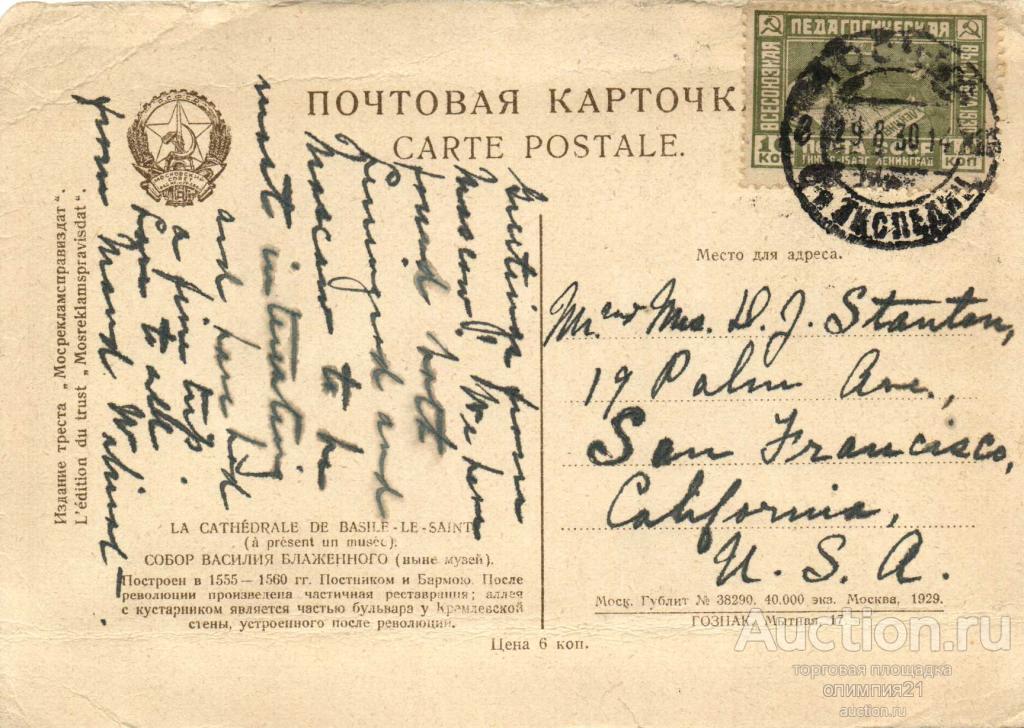 ПОЧТОВАЯ КАРТОЧК
CARTE POSTALE.
ВСЕСОЮЗНАЯ
ПЕДАГОГИЧЕСКАЯ
ВЫСТАВКА
10 КОП
ЛЕНИНГРАД
КОП
29 8 30
ЭКСПЕДИЦ
Издание треста „Мосрекламсправиздат“.
L'édition du trust „Mosreklamspravisdat“.
Greetings from
Moscow. We have
found both
Leningrad and
Moscow to be
most interesting
and have had
a fine trip.
to all
from Maud
Место для адреса.
Mr and Mrs. D. J. Stanton,
19 Palm Ave.,
San Francisco,
California,
U. S. A.
LA CATHÉDRALE DE BASILE-LE-SAINT
(à présent un musée).
СОБОР ВАСИЛИЯ БЛАЖЕННОГО (ныне музей).
Построен в 1555—1560 гг. Постником и Бармою. После
революции произведена частичная реставрация; аллея
с кустарником является частью бульвара у Кремлевской
стены, устроенного после революции.
Моск. Гублит № 38290. 40.000 экз. Москва, 1929.
ГОЗНАК. Мытная, 17
Цена 6 коп.
Auction.ru
торговая площадка
олимпия21
auction.ru